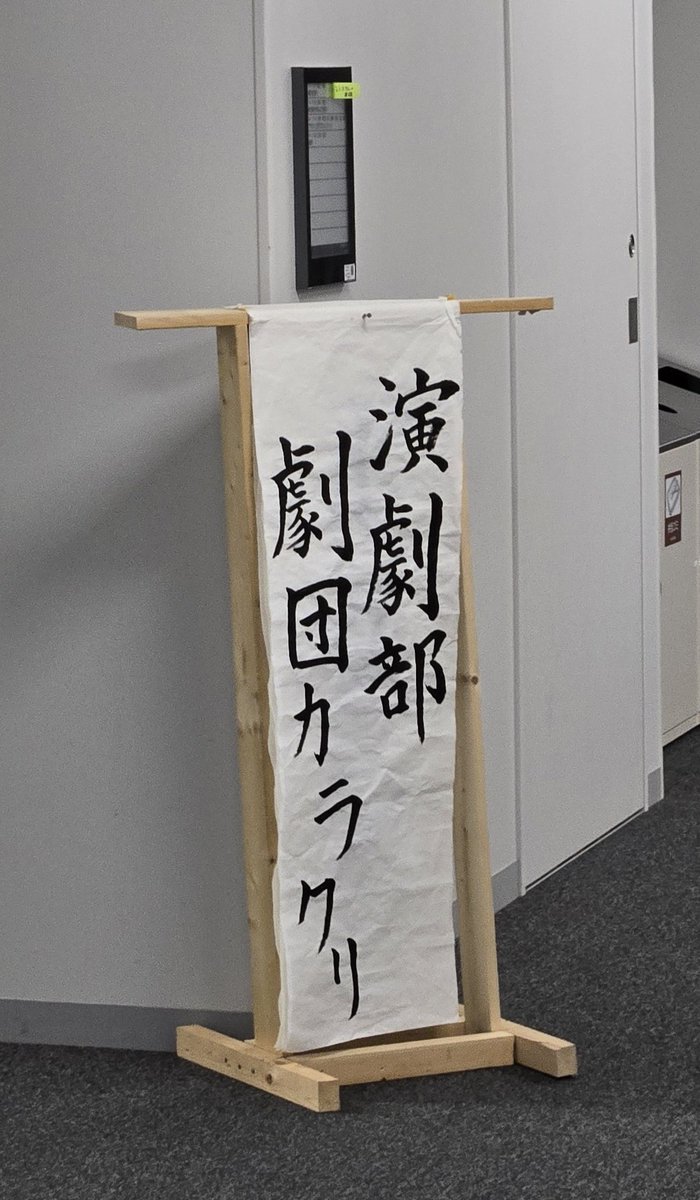 演劇部
劇団カラクリ